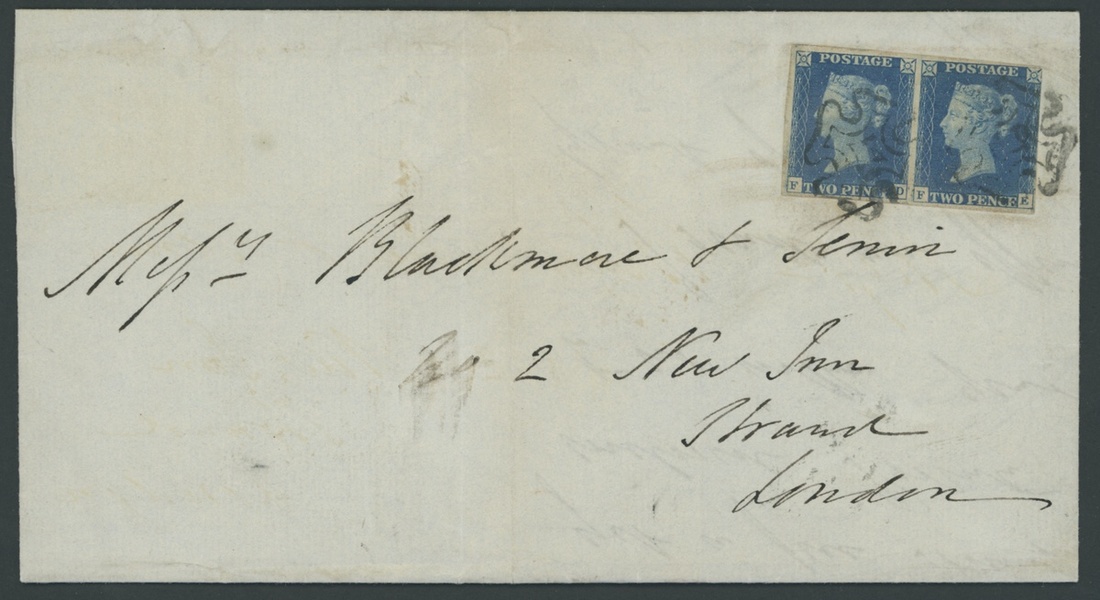 POSTAGE POSTAGE
F TWO PENCE D F TWO PENCE E
Messrs Blackmore & Senior
No 2 New Inn
Strand
London